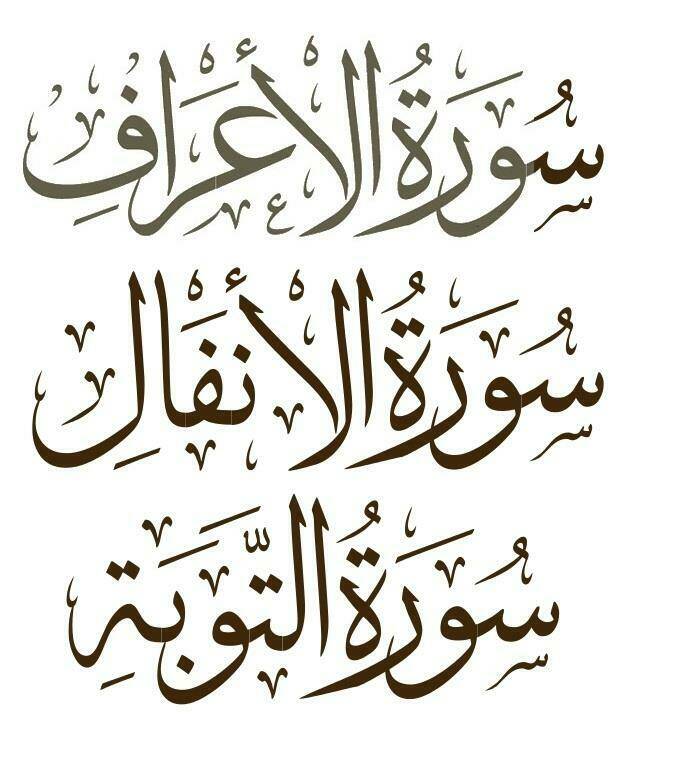 سُورَةُ الْأَعْرَافِ
سُورَةُ الْأَنْفَالِ
سُورَةُ التَّوبَةِ